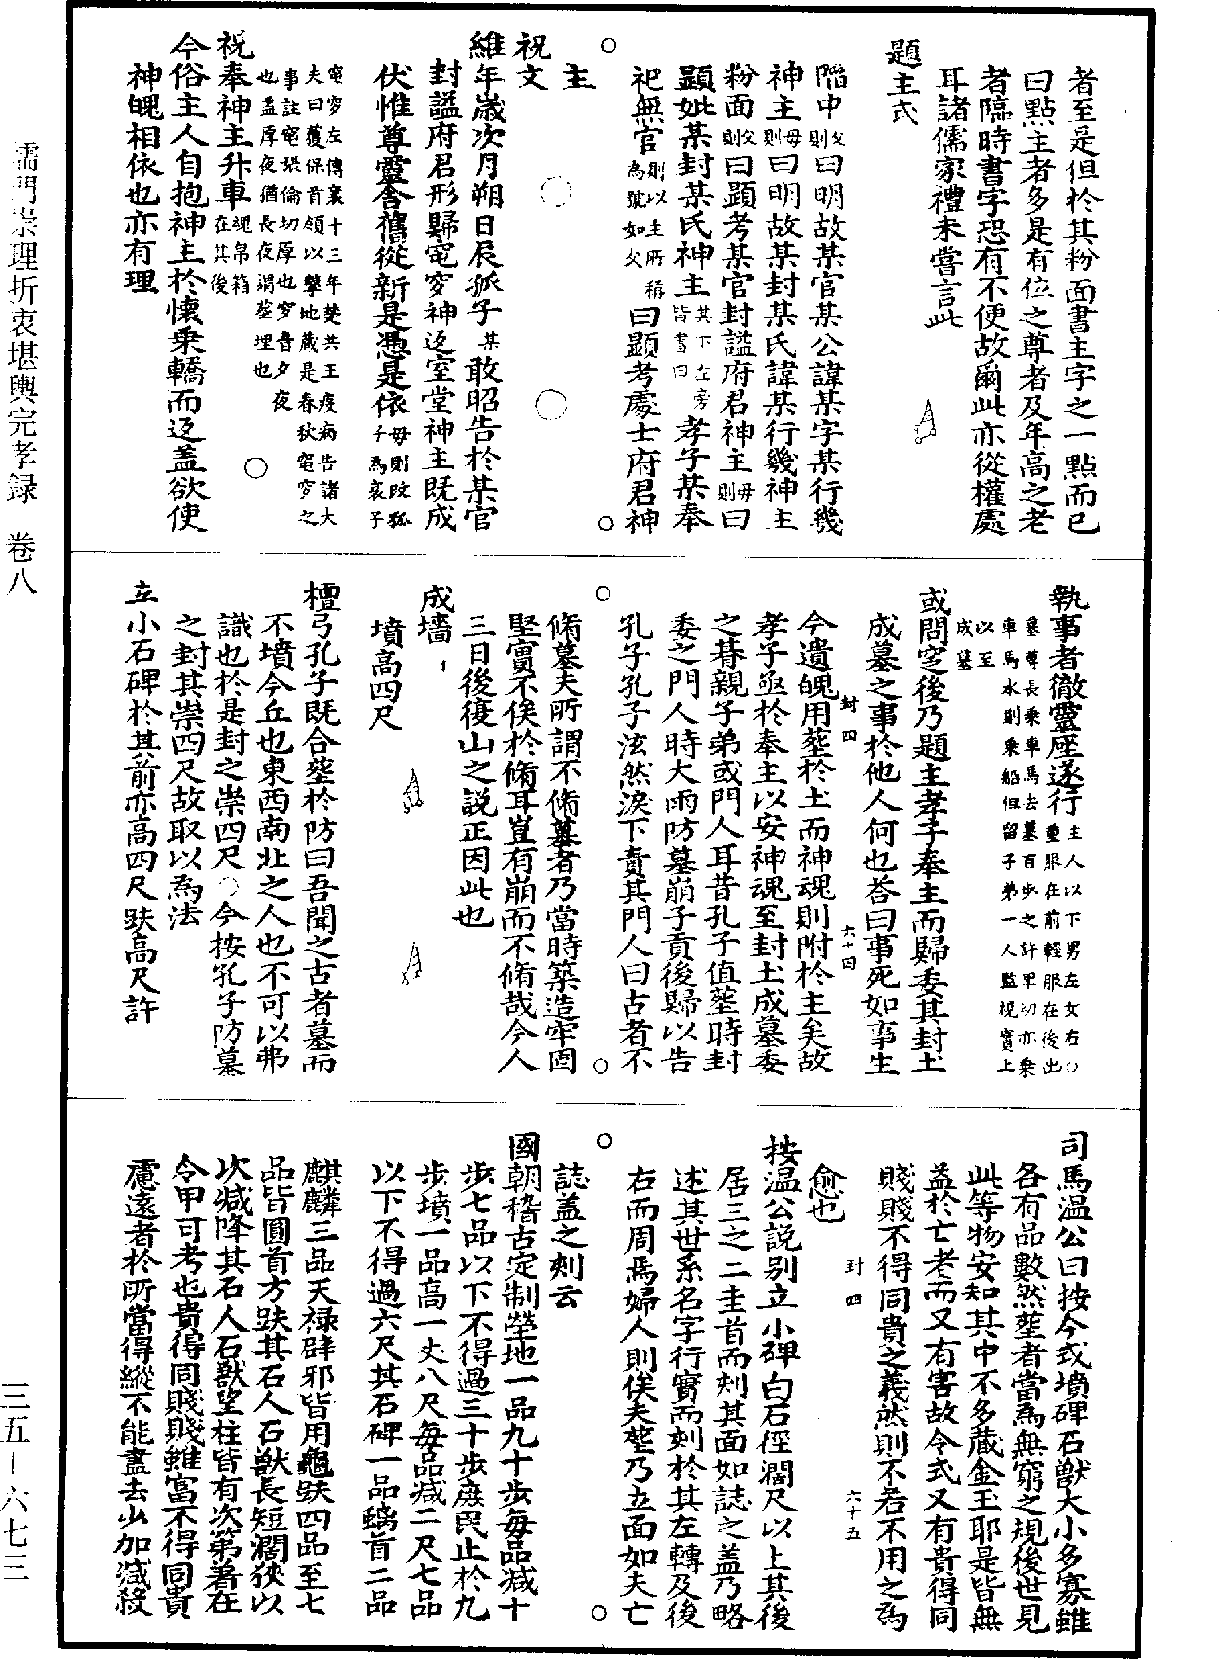 者至是但於其粉面書主字之一點而已
曰點主者多是有位之尊者及年高之老
者臨時書字恐有不便故爾此亦從權處
耳諸儒家禮未嘗言此
題主式
陷中父則曰明故某官某公諱某字某行幾
神主母則曰明故某封某氏諱某行幾神主
粉面父則曰顯考某官封謚府君神主母則曰
顯妣某封某氏神主其下左旁皆書曰孝子某奉
祀無官則以生所稱為號如父曰顯考處士府君神
主
祝文
維年歲次月朔日辰孤子某敢昭告於某官
封謚府君形歸窀穸神返室堂神主既成
伏惟尊靈舍舊從新是憑是依母則改孤子為哀子
窀穸左傳襄十三年楚共王疾病告諸大
夫曰獲保首領以歿地藏是春秋窀穸之
事註窀張倫切厚也穸音夕夜
也孟厚夜猶長夜謂塟埋也
祝奉神主升車魂帛箱在其後
今俗主人自抱神主於懷乘轎而返盖欲使
神魄相依也亦有理
執事者徹靈座遂行主人以下男左女右○
重服在前輕服在後出
墓尊長乘車馬去墓百步之許卑幼亦乘
車馬水則乘船但留子弟一人監視實土
以至
成墓
或問窆後乃題主孝子奉主而歸委其封土
成墓之事於他人何也答曰事死如事生
封四 六十四
今遺魄用塟於土而神魂則附於主矣故
孝子亟於奉主以安神魂至封土成墓委
之朞親子弟或門人耳昔孔子值塟時封
委之門人時大雨防墓崩子貢後歸以告
孔子孔子泫然淚下責其門人曰古者不
脩墓夫所謂不脩墓者乃當時築造牢固
堅實不俟於脩耳豈有崩而不脩哉今人
三日後復山之説正因此也
成墻
墳高四尺
檀弓孔子既合塟於防曰吾聞之古者墓而
不墳今丘也東西南北之人也不可以弗
識也於是封之崇四尺○今按孔子防墓
之封其崇四尺故取以為法
立小石碑於其前亦高四尺趺高尺許
司馬温公曰按今式墳碑石獸大小多寡雖
各有品數然塟者當為無窮之規後世見
此等物安知其中不多藏金玉耶是皆無
益於亡者而又有害故令式又有貴得同
賤賤不得同貴之義然則不若不用之為
愈也
封四 六十五
按温公説别立小碑白石徑濶尺以上其後
居三之二圭首而刻其面如誌之盖乃略
述其世系名字行實而刻於其左轉及後
右而周焉婦人則俟夫塟乃立面如夫亡
誌盖之刻云
國朝稽古定制塋地一品九十步毎品减十
步七品以下不得過三十步庶民止於九
步墳一品高一丈八尺毎品减二尺七品
以下不得過六尺其石碑一品螭首二品
麒麟三品天禄辟邪皆用龜趺四品至七
品皆圓首方趺其石人石獸長短濶狹以
次减降其石人石獸望柱皆有次第著在
令甲可考也貴得同賤賤雖富不得同貴
慮遠者於所當得縱不能盡去少加减殺
儒門崇理折衷堪輿完孝録 卷八
三五－六七三